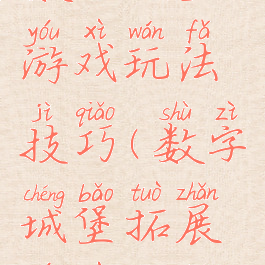 yóu xì wán fǎ
游戏玩法
jì qiǎo shù zì
技巧(数字
chéng bǎo tuò zhǎn
城堡拓展